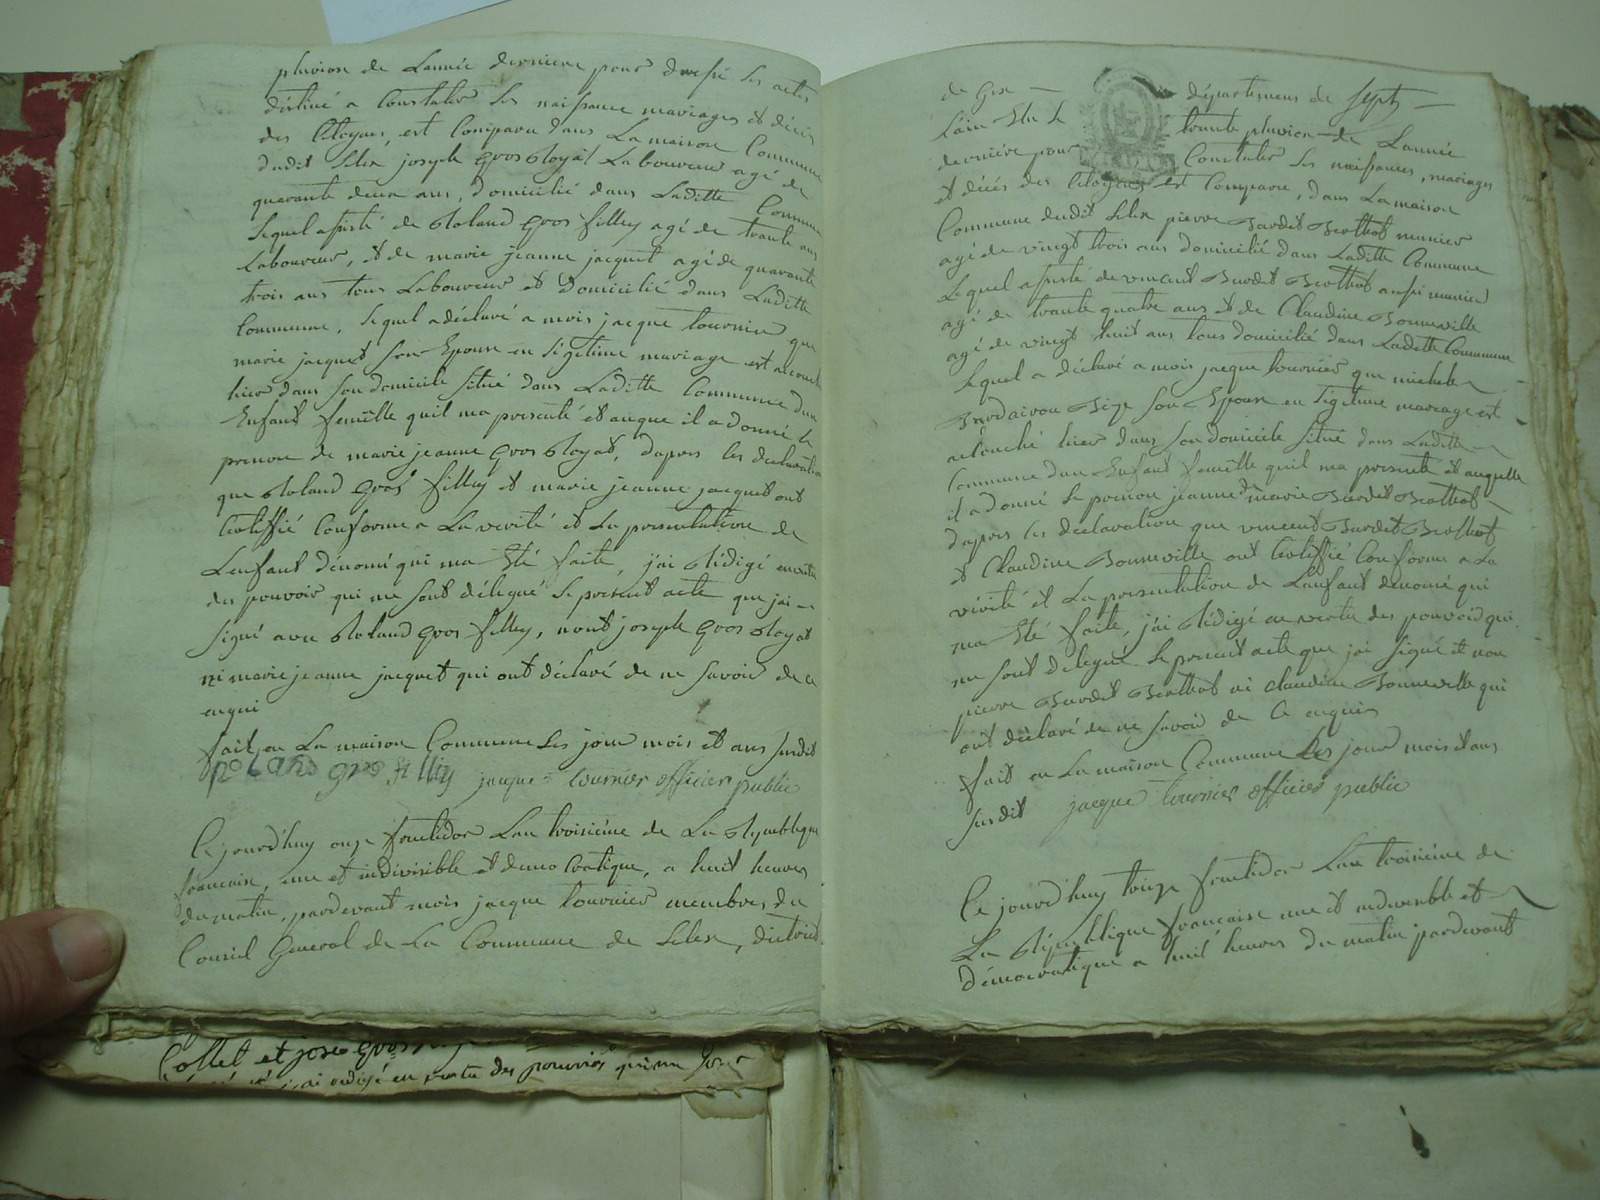 pluviose de Lannée derniere pour dressé les actes
destiné a Constater les naissance mariages et décés
des Citoyens, est Comparu dans La maison Commune
dudit Lelex joseph gros Royat Laboureur agé de
quarante deux ans, domicilié dans Laditte Commune
lequel assisté de Roland gros filley agé de trante ans
Laboureur, et de marie jeanne jacquet agé de quarante
trois ans tous Laboureur et domicilié dans Laditte
Commune, lequel a déclaré a mois jacque tournier que
marie jacquet son Epouse en légitime mariage est accouché
hier dans son domicile situé dans Laditte Commune dun
Enfant femelle quil ma presenté et auque il a donné le
prenom de marie jeanne gros Royat, dapres les declaration
que Roland gros filley et marie jeanne jacquet ont
Certiffié Conforme a La verité et La presentation de
Lenfant dénomé qui ma Eté faite, jai Rédigé en vertu
des pouvoir qui me sont délegué le present acte que jai
signé avec Roland gros filley, nont joseph gros Royat
ni marie jeanne jacquet qui ont déclaré de ne savoir de ce
enqui
fait en La maison Commune les jour mois et ans susdit
Roland gros filley jacque tournier officier public
Ce jourd'huy onze fructidor Lan troisiéme de La Republique
francaise, une et indivisible et democratique, a huit heures
du matin, pardevant mois jacque tournier membres du
Conseil General de La Commune de Lelex, district
de Gex département de
Lain Elu le trante pluviose de Lannée
derniére pour Constater les naissances, mariages
et décés des Citoyens est Comparu, dans La maison
Commune dudit Lelex pierre Burdet Brottet munier
agé de vingt trois ans domicilié dans Laditte Commune
Lequel assisté de vincent Burdet Brottet aussi munier
agé de trante quatre ans et de Claudine Bonneville
agé de vingt huit ans tous domicilié dans Laditte Commune
Lequel a déclaré a mois jacque tournier que michele
son Epouse en légitime mariage est
acouché hier dans son domicile situé dans Laditte
Commune dun Enfant femelle quil ma presenté et auquelle
il a donné le prenom jeanne marie Burdet Brottet
dapres les declaration que vincent Burdet Brottet
et Claudine Bonneville ont Certiffié Conforme a La
vérité et La presentation de Lenfant dénomé qui
ma Eté faite, jai Rédigé en vertu des pouvoir qui
me sont délegué le present acte que jai signé et non
pierre Burdet Brottet ni Claudine Bonneville qui
ont déclaré de ne savoir de Ce enquis
fait en La maison Commune Les jour mois et ans
susdit jacque tournier officier public
Ce jourd'huy treize fructidor Lan troisiéme de
La République francaise une et indivisible et
démocratique a huit heures du matin pardevant
Collet et
jai redigé en vertu des pouvoirs qui me sont